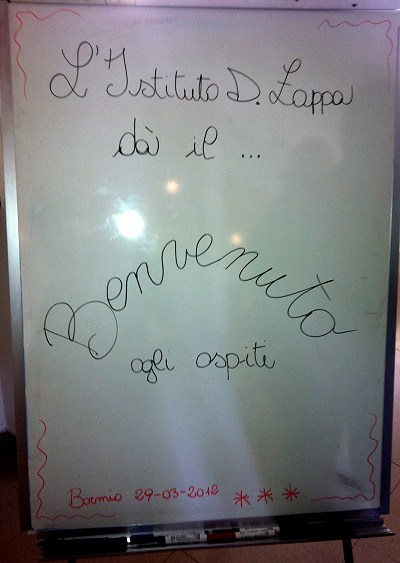 L'Istituto D. Zappa
dà il ...
Benvenuto
agli ospiti
Bormio 29-03-2012 ***